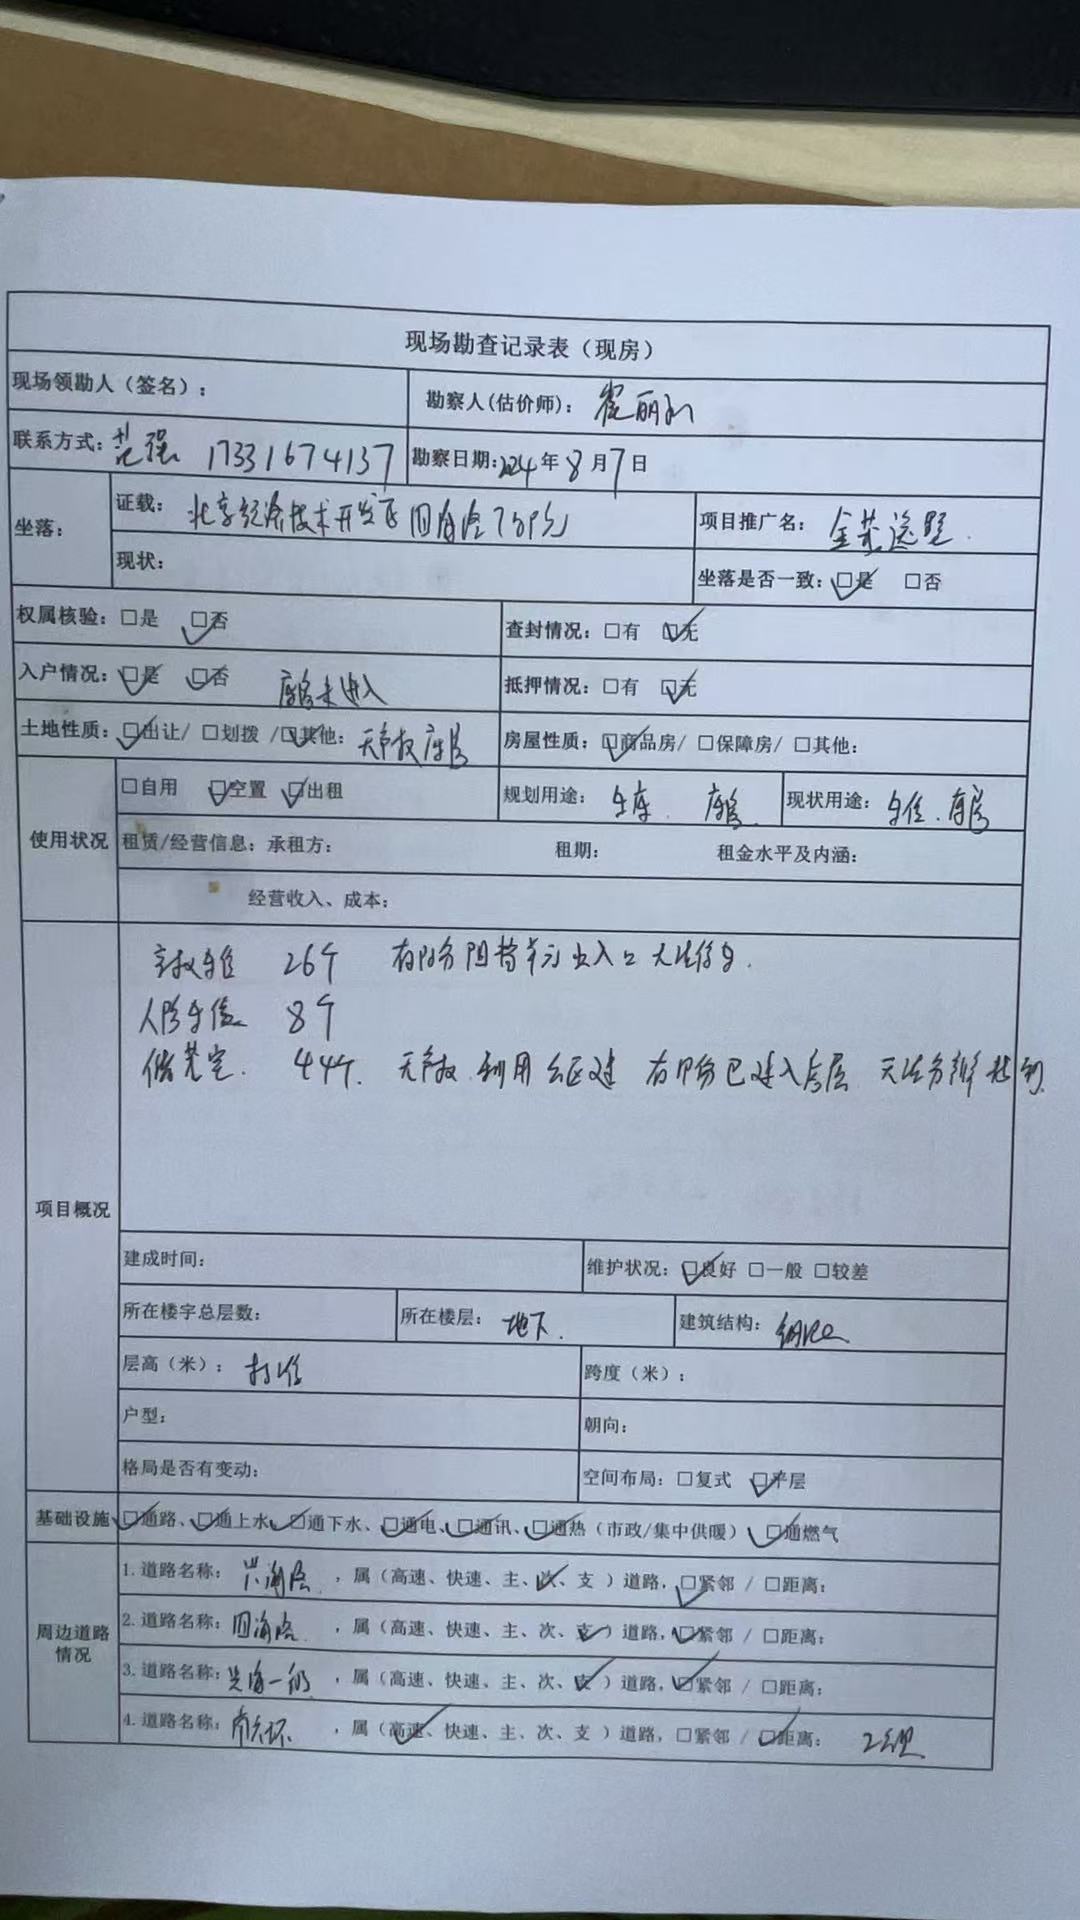 现场勘查记录表（现房）
现场领勘人（签名）：
勘察人(估价师)： 丽
联系方式: 范强 17331674137 勘察日期: 2024年8月7日
坐落： 证载： 北京经济技术开发区四海路7号院 项目推广名：
现状： 坐落是否一致: ☑是 □否
权属核验: □是 ☑否 查封情况: □有 ☑无
入户情况: ☑是 ☑否 库房未进入 抵押情况: □有 ☑无
土地性质: ☑出让/ □划拨 /☑其他: 无产权库房 房屋性质: ☑商品房/ □保障房/ □其他:
使用状况 □自用 ☑空置 ☑出租 规划用途: 车库 库房 现状用途: 车位、库房
租赁/经营信息: 承租方: 租期: 租金水平及内涵:
经营收入、成本:
项目概况
产权车位 26个 有部分阻挡单元出入口无法停车.
人防车位 8个
储藏室. 44个. 无产权 有部分已进入 无法分辨
建成时间: 维护状况: ☑良好 □一般 □较差
所在楼宇总层数: 所在楼层: 地下. 建筑结构: 钢混
层高（米）: 标准 跨度（米）:
户型: 朝向:
格局是否有变动: 空间布局: □复式 ☑平层
基础设施 ☑通路、☑通上水、☑通下水、☑通电、☑通讯、☑通热（市政/集中供暖） ☑通燃气
周边道路情况
1.道路名称: 兴海路 ，属（高速、快速、主、次、支 ）道路，☑紧邻 / □距离:
2.道路名称: 四海路 ，属（高速、快速、主、次、支 ）道路，☑紧邻 / □距离:
3.道路名称: 兴海一街 ，属（高速、快速、主、次、支 ）道路，☑紧邻 / □距离:
4.道路名称: 南六环 ，属（高速、快速、主、次、支 ）道路，□紧邻 / ☑距离: 2公里